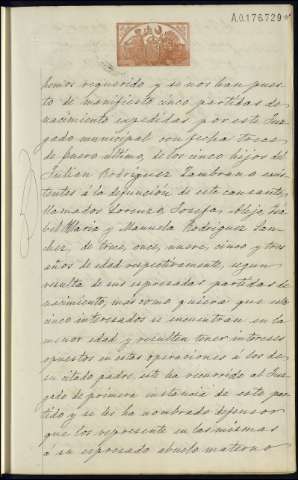 A.0.176.729
hemos requerido y se nos han pues-
to de manifiesto cinco partidas de
nacimiento espedidas por este Juz-
gado municipal con fecha trece
de Enero último, de los cinco hijos del
Julian Rodriguez Zambrano exis-
tentes á la defunción de este causante,
llamados Lorenza, Josefa, Alejo, Isa-
bel Maria y Manuela Rodriguez San-
chez, de trece, once, nueve, cinco y tres
años de edad respectivamente, segun
resulta de sus espresadas partidas de
nacimiento, mas como quiera que estos
cinco interesados se encuentran en la
menor edad y resulten tener intereses
opuestos en estas operaciones á los de
su citado padre, este ha recurrido al Juz-
gado de primera instancia de este par-
tido y se les ha nombrado defensor
que los represente en las mismas
á su espresado abuelo materno